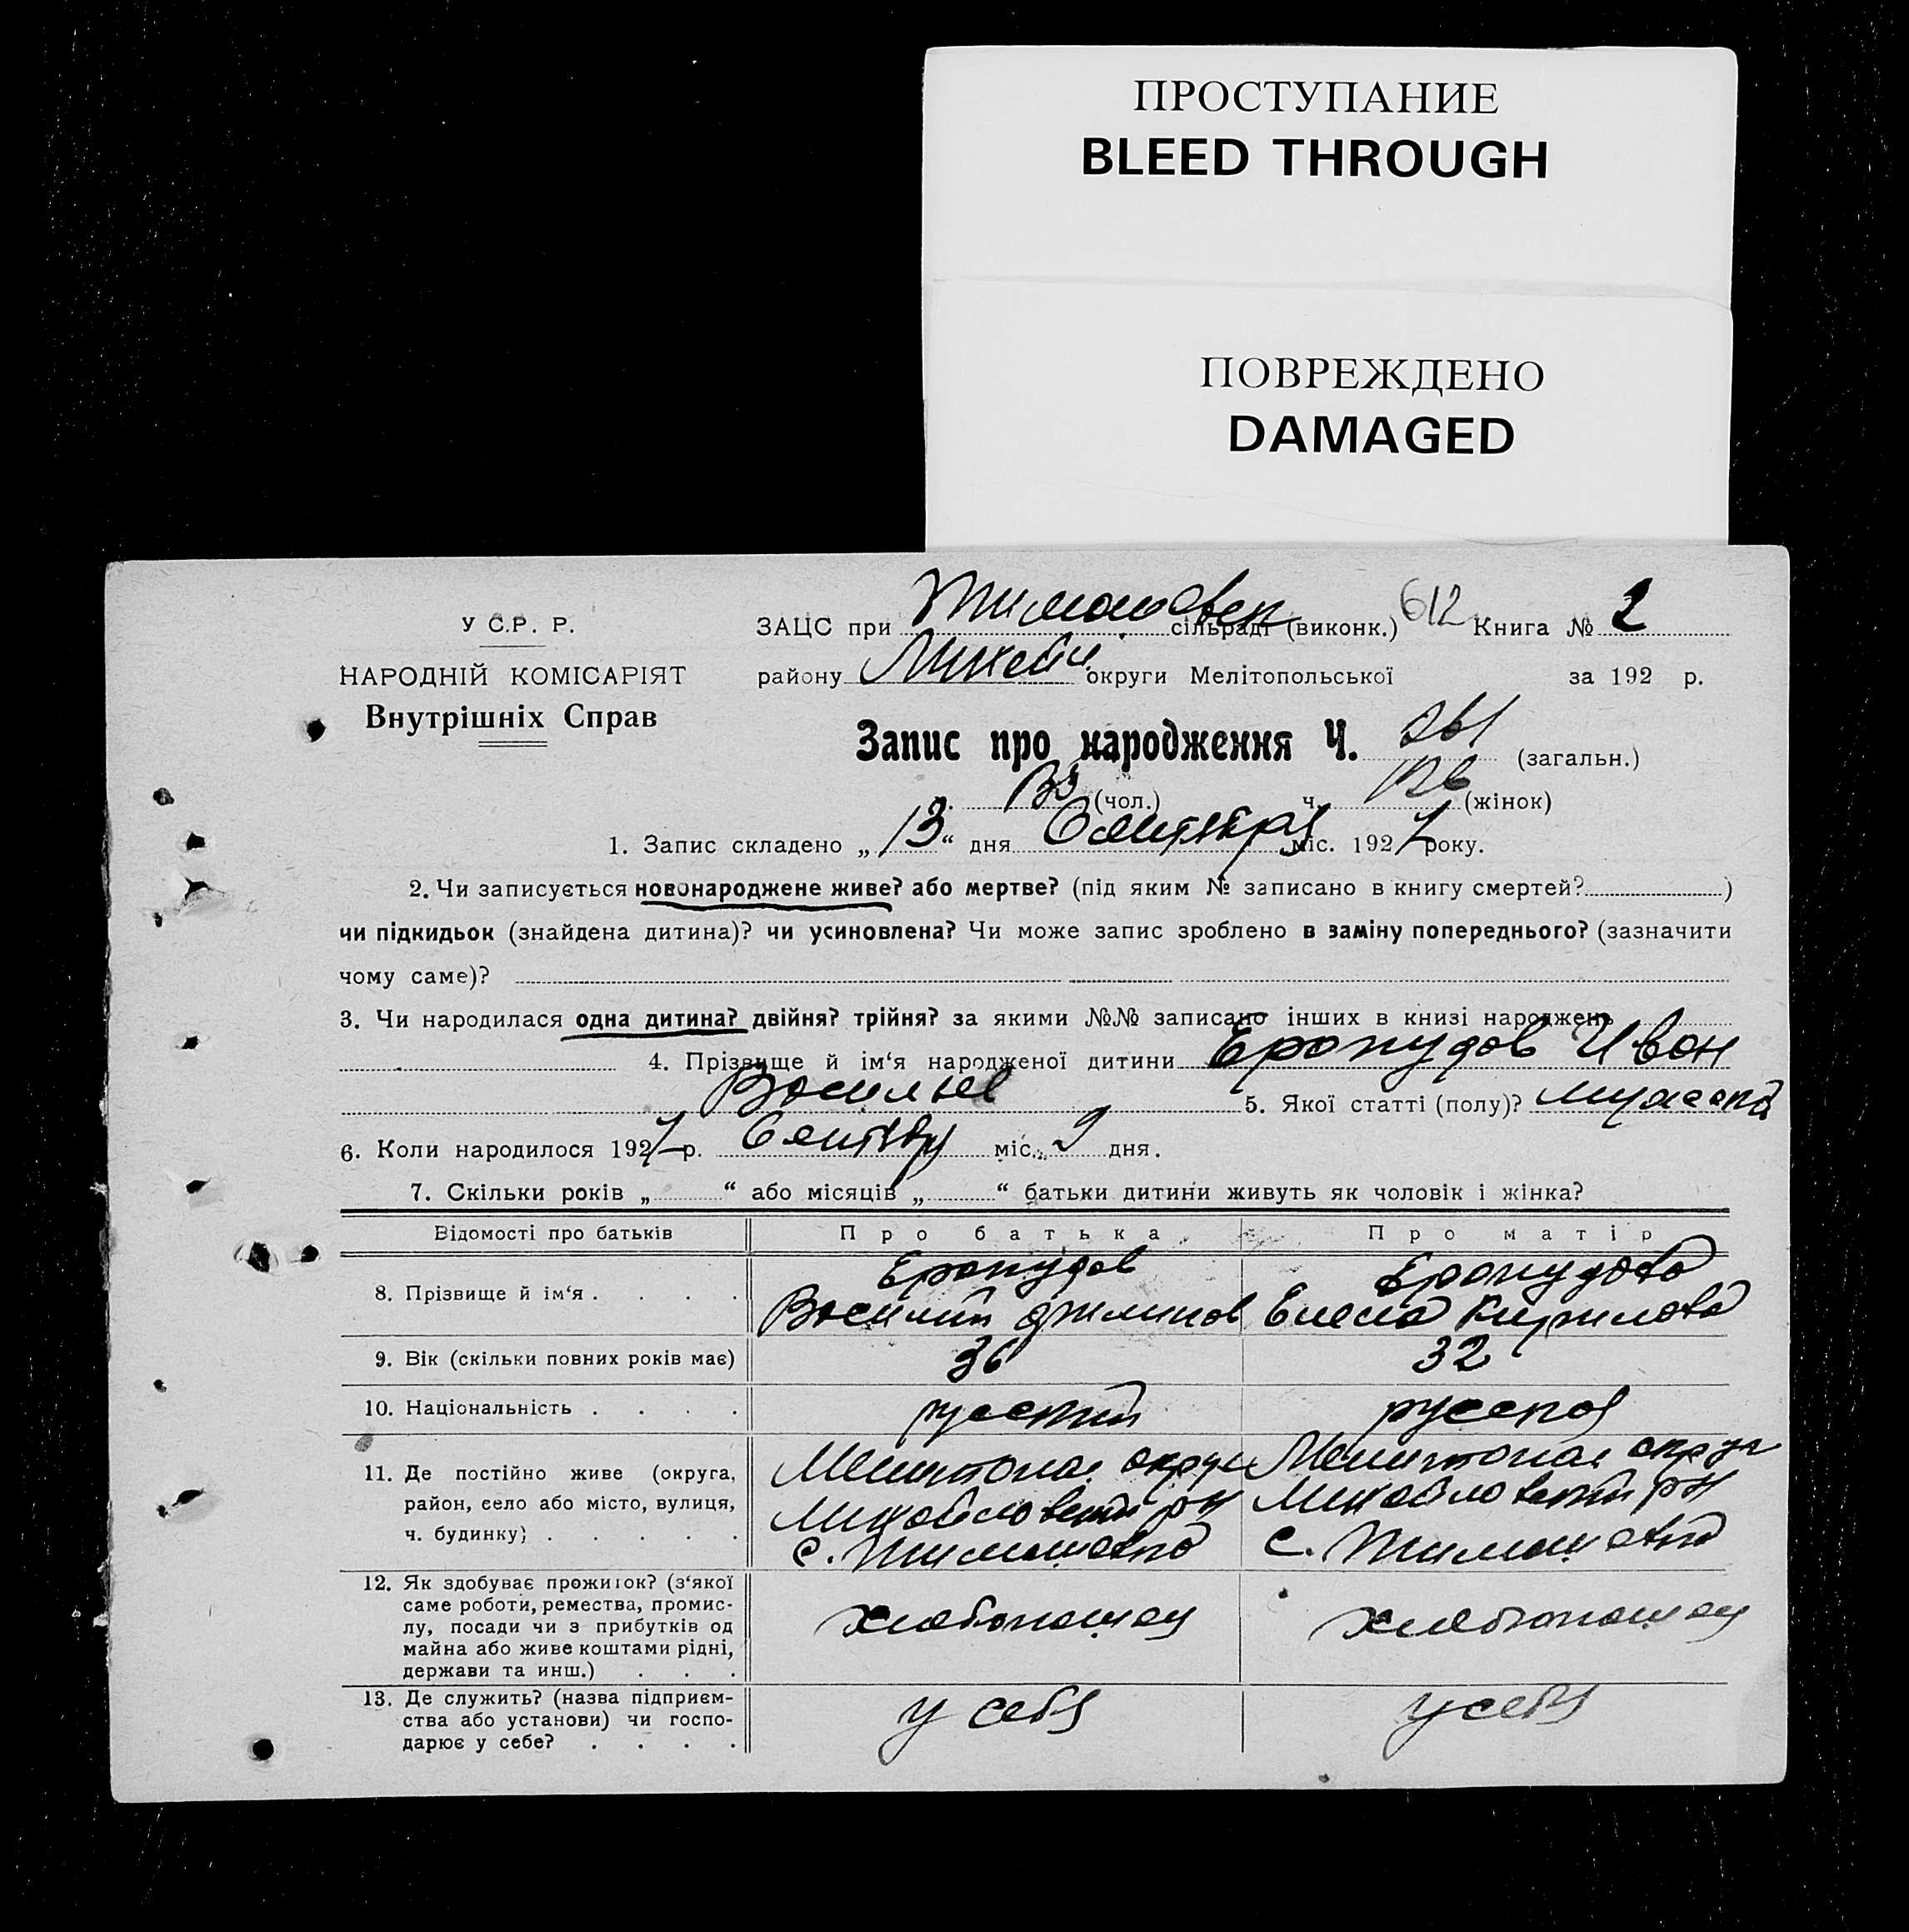 ПРОСТУПАНИЕ
BLEED THROUGH
ПОВРЕЖДЕНО
DAMAGED
У С.Р. Р.
НАРОДНІЙ КОМІСАРІЯТ
Внутрішніх Справ
ЗАЦС при Тимошовск сільраді (виконк.) 612 Книга № 2
району округи Мелітопольської за 192 р.
Запис про народження Ч. 261 (загальн.)
(чол.) ч. 126 (жінок)
1. Запис складено „ 13 “ дня Сентября міс. 1927 року.
2. Чи записується новонароджене живе? або мертве? (під яким № записано в книгу смертей? )
чи підкидьок (знайдена дитина)? чи усиновлена? Чи може запис зроблено в заміну попереднього? (зазначити
чому саме)?
3. Чи народилася одна дитина? двійня? трійня? за якими №№ записано інших в книзі народжень
4. Прізвище й ім‘я народженої дитини Ивон
Восильев 5. Якої статті (полу)?
6. Коли народилося 1927 р. Сентябр міс. 9 дня.
7. Скільки років „ “ або місяців „ “ батьки дитини живуть як чоловік і жінка?
Відомості про батьків Про батька Про матір
8. Прізвище й ім‘я . . . .
Восилий Филипов Елена Кирилово
9. Вік (скільки повних років має) 36 32
10. Національність . . . . русский русская
11. Де постійно живе (округа, район, село або місто, вулиця, ч. будинку) . . . . .
Мелитопол округ Мелитопол округ
Михойловский рн Михойловский рн
с. Тимошовко с. Тимошовко
12. Як здобуває прожиток? (з‘якої
саме роботи, ремества, промис-
лу, посади чи з прибутків од
майна або живе коштами рідні,
держави та инш.) . . .
хлебопошец хлебопошец
13. Де служить? (назва підприєм-
ства або установи) чи госпо-
дарює у себе? . . . .
у себя у себя